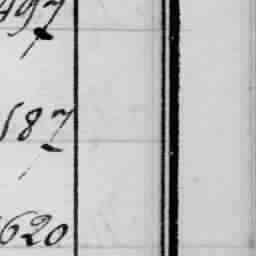 497
587
1620